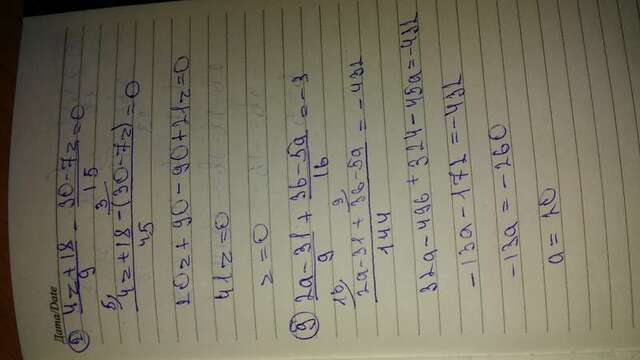 Дата/Date
2) 4z+18/9 - 30-7z/15 = 0
5) 4z+18 - 3) (30-7z)/45 = 0
20z+90-90+21z=0
41z=0
z=0
9) 2a-31/9 + 36-5a/16 = -3
16) 2a-31 + 9) 36-5a/144 = -432
32a-496+324-45a=-432
-13a-172=-432
-13a=-260
a=20